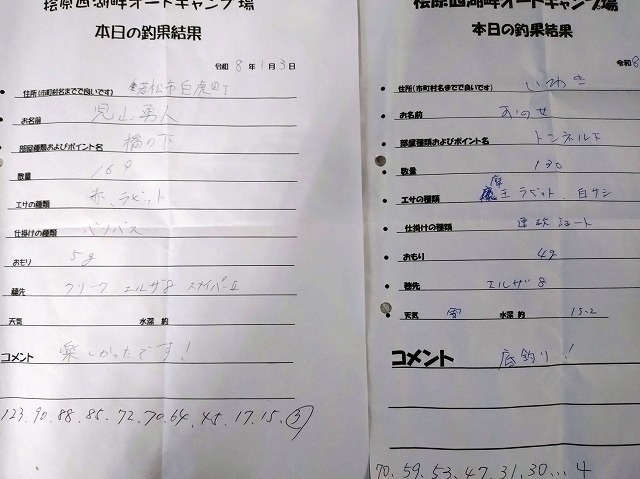 桧原西湖畔オートキャンプ場
本日の釣果結果
令和 8 年 1 月 3 日
住所(市町村名までで良いです) 若松市白虎町
お名前 児山勇人
部屋種類およびポイント名 橋の下
数量 169
エサの種類 赤、ラビット
仕掛けの種類 バリバス
おもり 5g
穂先 クリーク エルザ8 スナイパーⅡ
天気 水深 約
コメント 楽しかったです!
123.90.88.85.72.70.64.45.17.15.③
桧原西湖畔オートキャンプ場
本日の釣果結果
令和 8
住所(市町村名までで良いです) いわき
お名前 おのせ
部屋種類およびポイント名 トンネル下
数量 130
エサの種類 魔王 ラビット 白サシ
仕掛けの種類 ショート
おもり 4g
穂先 エルザ8
天気 雪 水深 約 15.2
コメント 底釣り!
70.59.53.47.31.30...4